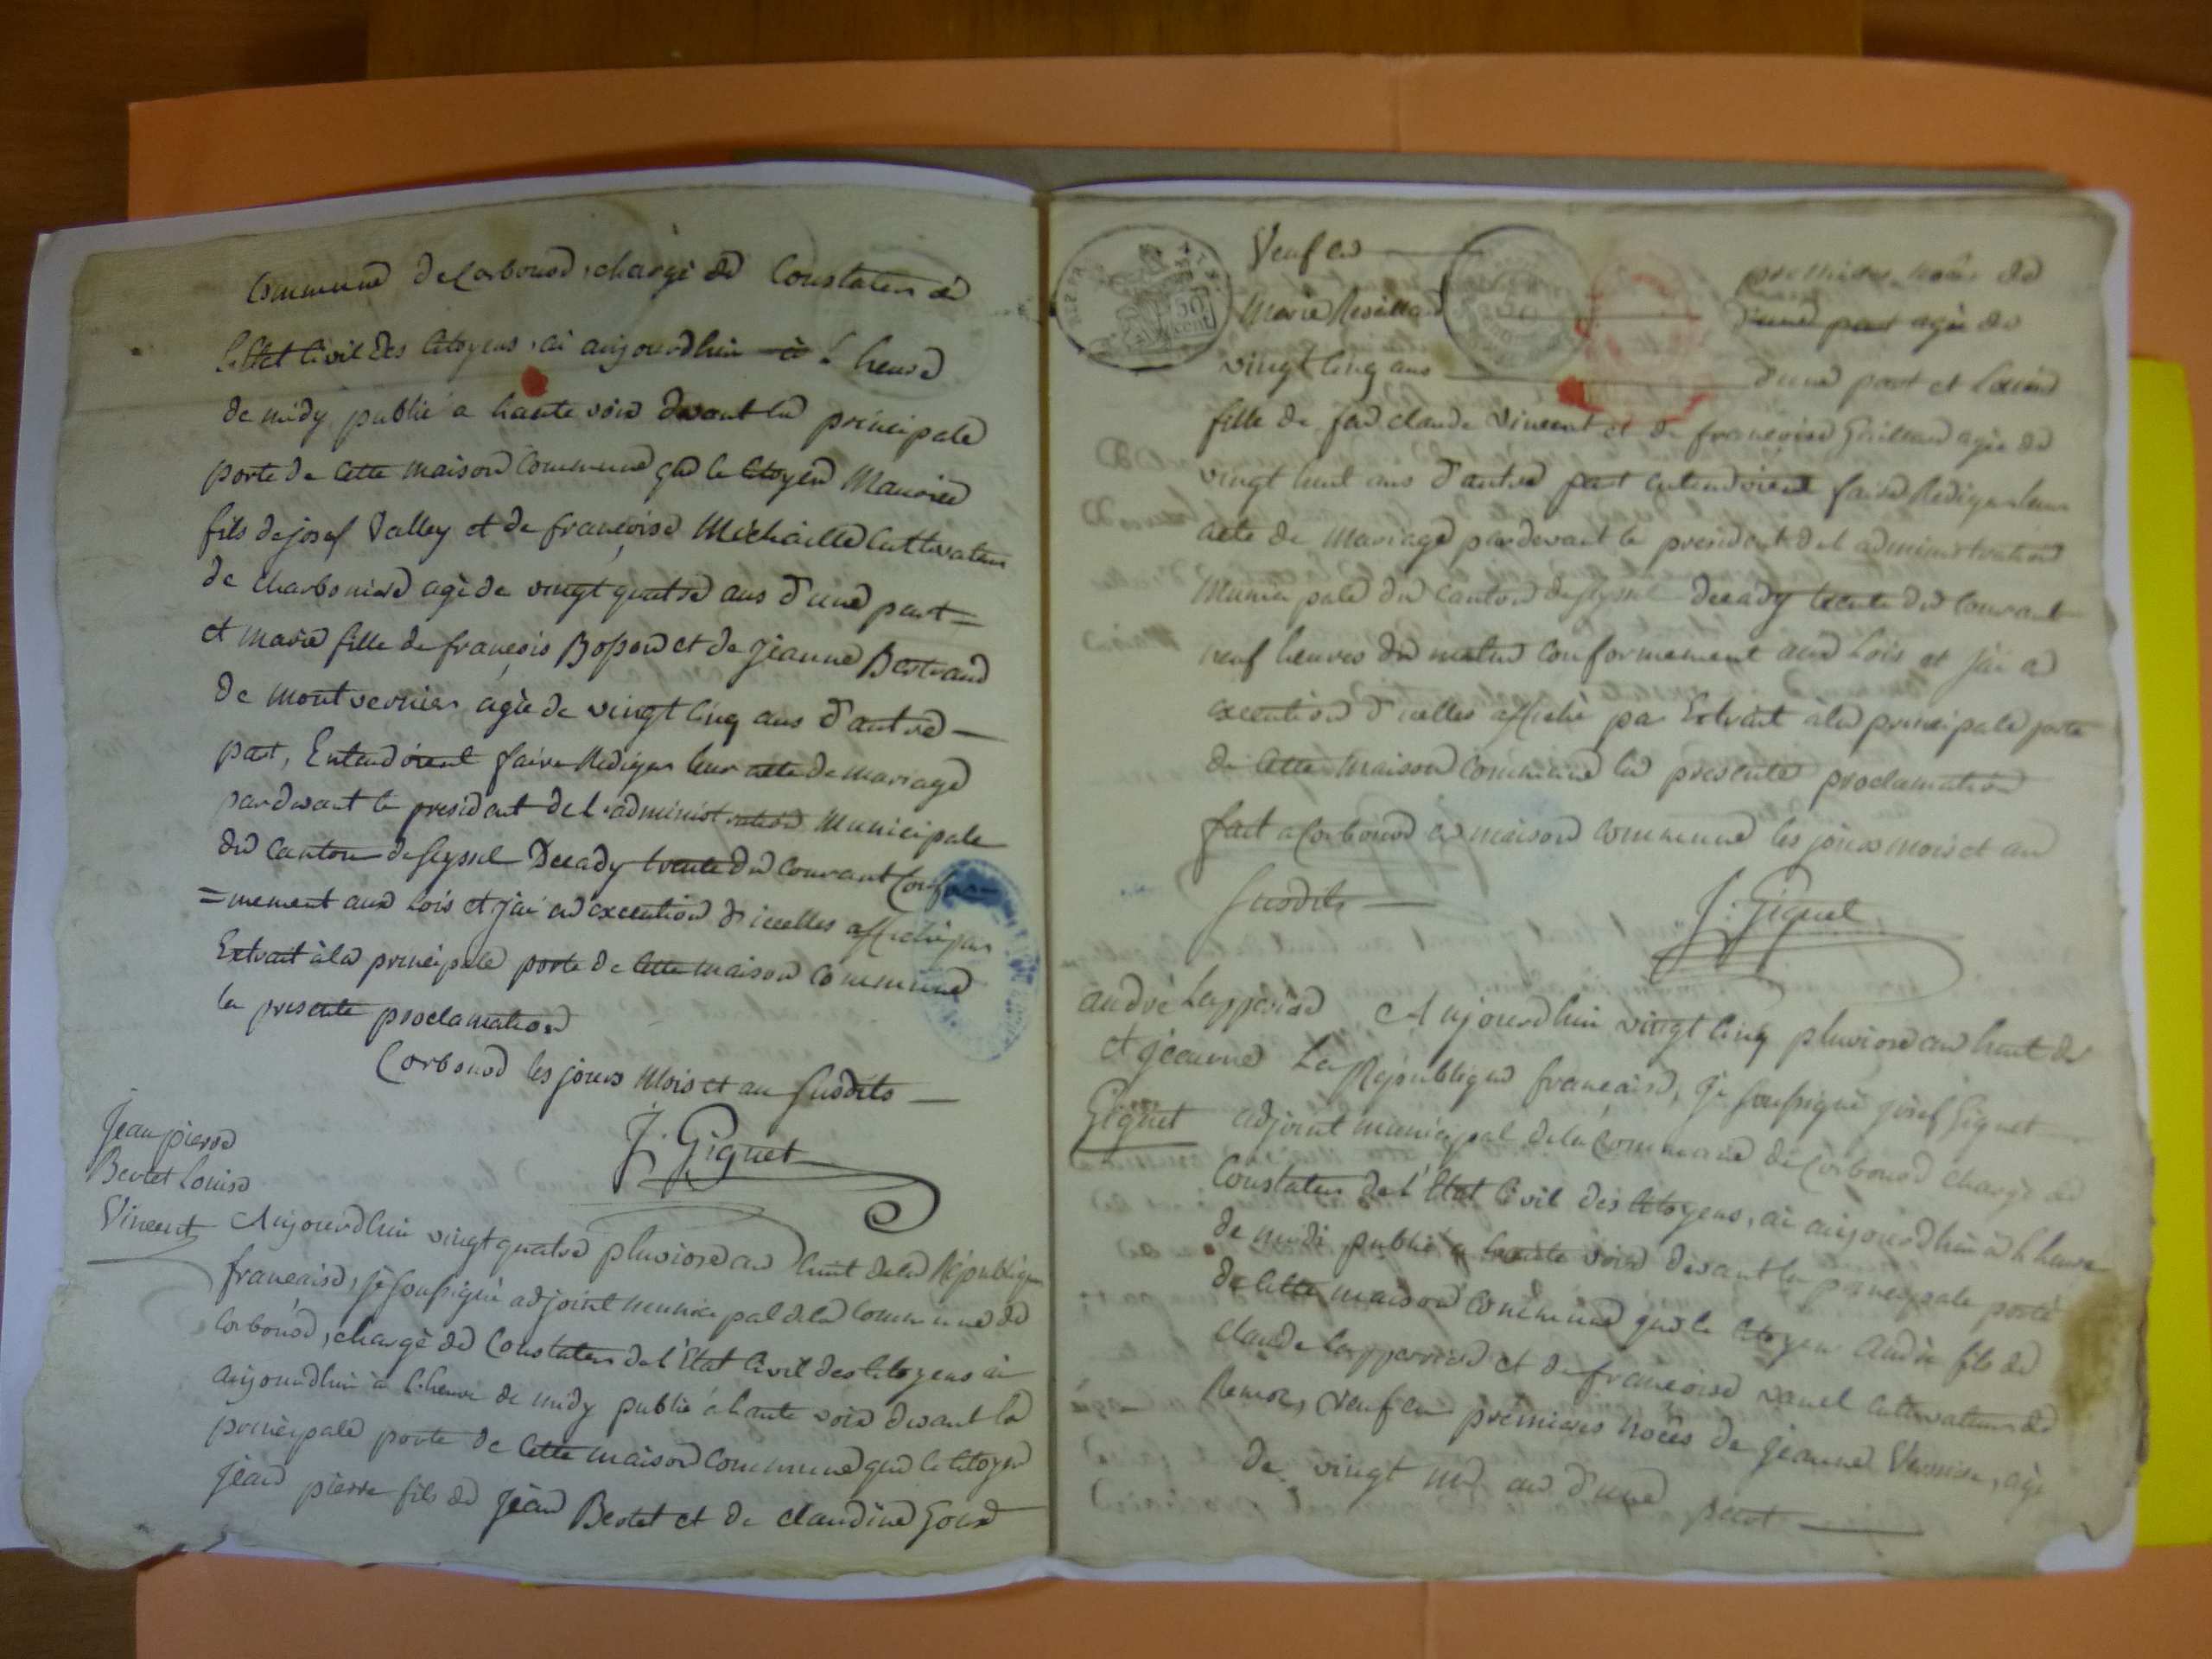 Commune de Corbonod, chargé de Constater de
l'Etat Civil des Citoyens, ai aujourdhui à l heure
de midy publié a haute voix devant la principale
porte de cette maison Commune que le Citoyen Maurice
fils de josef Valley et de françoise Michaille Cultivateur
de Charboniere agé de vingt quatre ans d'une part =
et marie fille de françois Bosson et de Jeanne Bertrand
de montvernier agée de vingt Cinq ans d'autre —
part, Entendoient faire Rediger leur acte de mariage
pardevant le president de l'administration Municipale
du Canton de Seyssel Decady trente du Courant Confor
=mement aux Lois et j'ai en execution d'icelles affiché par
Extrait à la principale porte de Cette maison Commune
la presente proclamation
Corbonod les jours Mois et an Susdits —
J. Giguet
Jean pierre
Bertet Louise
Vincent
Aujourdhui vingt quatre pluviose an huit de la République
françaisse, je soussigné adjoint municipal de la Commune de
Corbonod, chargé de Constater de l'Etat Civil des Citoyens ai
aujourdhui à l'heure de midy publié à haute voix devant la
principale porte de Cette maison Commune que le Citoyen
Jean pierre fils de Jean Bertet et de Claudine Goux
REP. FRA.
50 cent
Veuf en premieres noces de
Marie d'une part agée de
vingt Cinq ans d'une part et Louise
fille de feu claude Vincent et de françoise Gaillard agée de
vingt huit ans d'autre part entendoient faire Rediger leur
acte de Mariage pardevant le president del administration
Municipale du Canton de Seyssel Decady trente du Courant
neuf heures du matin Conformement aux Lois et j'ai en
execution d'icelles affiché par Extrait à la principale porte
de Cette maison Commune la presente proclamation
fait a Corbonod en maison Commune les jours mois et an
Susdits —
J. Giguet
andré Lapperière
et jeanne
Giguet
Aujourdhui vingt Cinq pluviose an huit de
La République française, je soussigné josef Giguet
adjoint municipal de la Commune de Corbonod chargé de
Constater de l'Etat Civil des Citoyens, ai aujourdhui à l heure
de midi publié à haute voix devant la principale porte
de Cette maison Commune que le Citoyen André fils de
Claude Lapperriere et de françoise Cultivateur de
Remoz, Veuf en premieres noces de jeanne agé
de vingt un an d'une part —